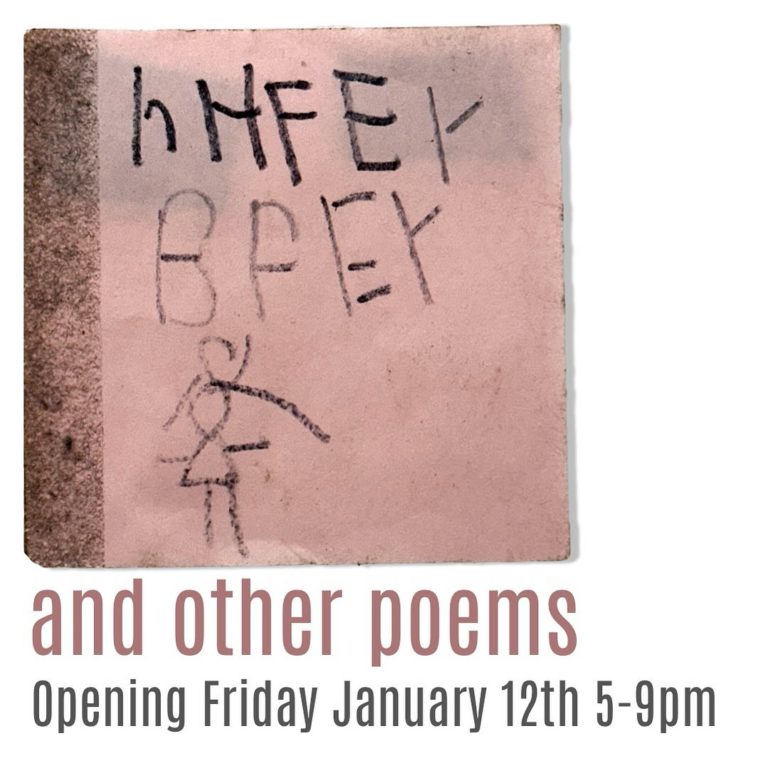 hHFEY
BFEY
and other poems
Opening Friday January 12th 5-9pm